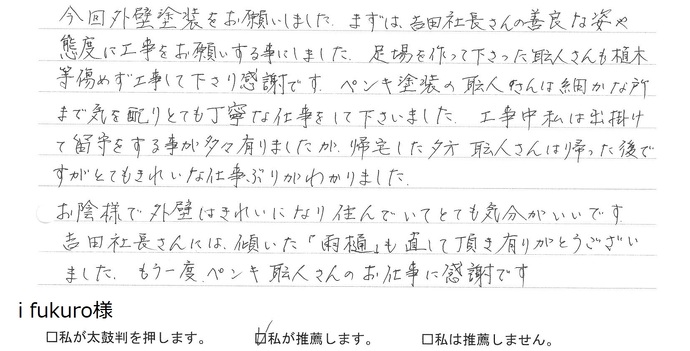 今回外壁塗装をお願いしました。まずは、吉田社長さんの善良な姿や
態度に工事をお願いする事にしました。足場を作って下さった職人さんも植木
等傷めず工事して下さり感謝です。ペンキ塗装の職人さんは細かな所
まで気を配りとても丁寧な仕事をして下さいました。工事中私は出掛け
て留守をする事が多々有りましたが、帰宅した夕方職人さんは帰った後で
すがとてもきれいな仕事ぶりがわかりました。
お陰様で外壁はきれいになり住んでいてとても気分がいいです
吉田社長さんには、傾いた「雨樋」も直して頂き有りがとうござい
ました。もう一度、ペンキ職人さんのお仕事に感謝です
i fukuro様
☐私が太鼓判を押します。 ☑私が推薦します。 ☐私は推薦しません。